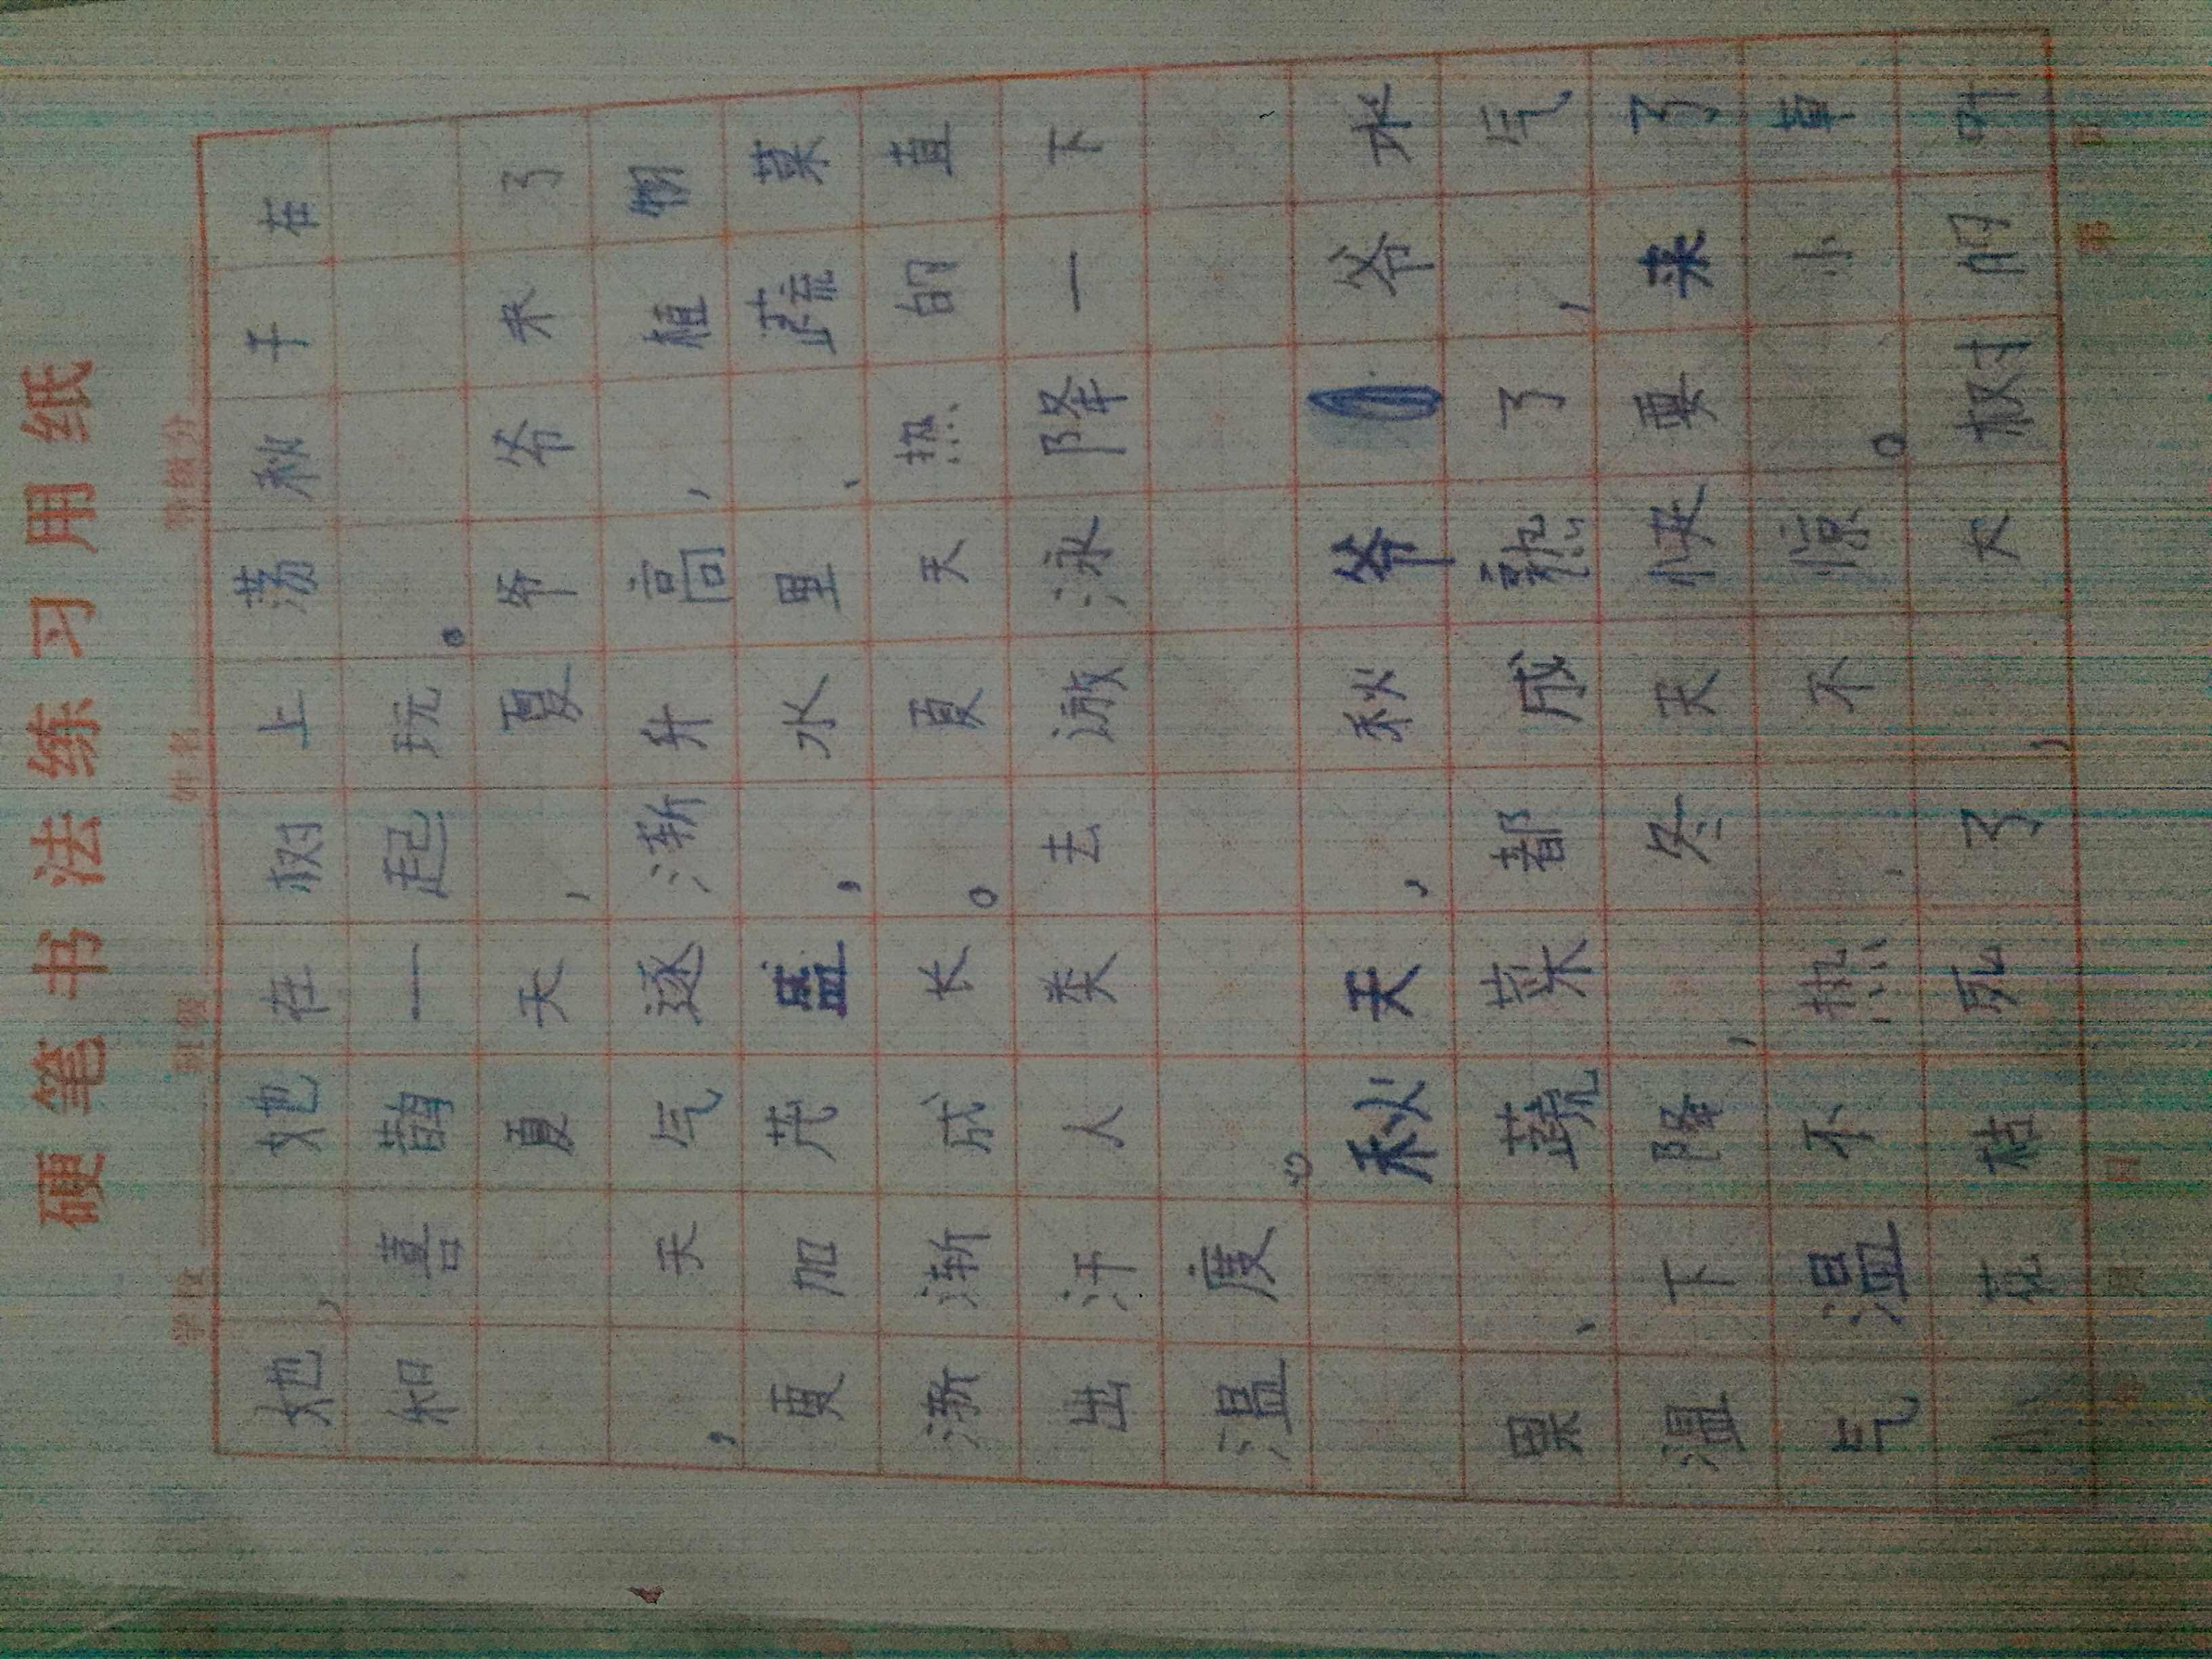 硬笔书法练习用纸
学校 班级 姓名 等级分
她，她在树上荡秋千在
和喜鹊一起玩。
夏天，夏爷爷来了
，天气逐渐升高，植物
更加茂盛，水里、蔬菜
渐渐成长。夏天热的直
出汗人类去游泳降一下
温度。
秋天，秋爷爷爷来
果、蔬菜都成熟了，气
温下降，冬天快要来了，
气温不热，不惊。小草
小花枯死了，大树们叶
月 日 第 页